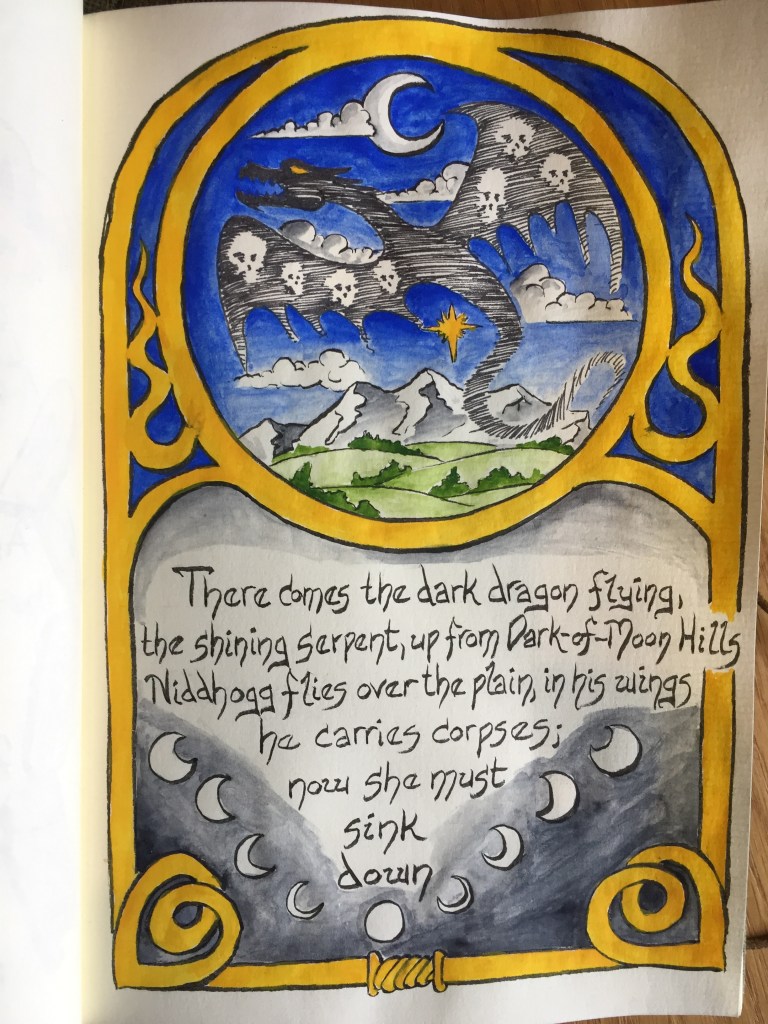 There comes the dark dragon flying,
the shining serpent, up from Dark-of-Moon Hills
Niddhogg flies over the plain, in his wings
he carries corpses;
now she must
sink
down